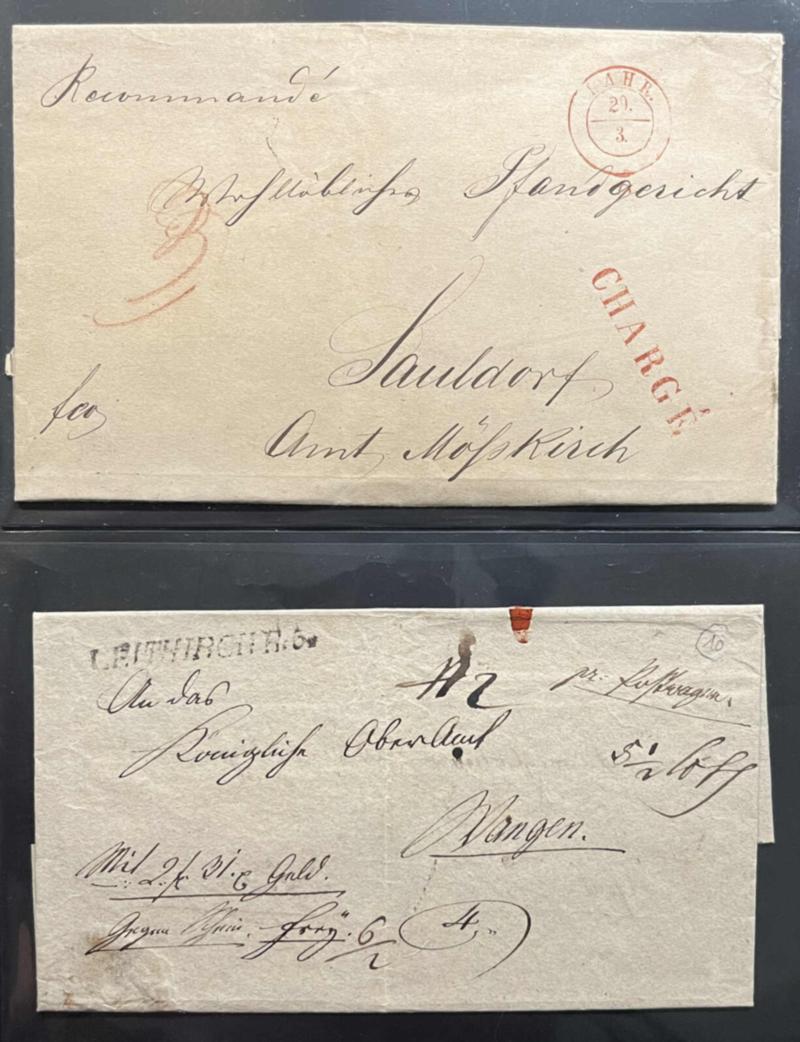 Recommandé
LAHR.
29.
3.
Wohllöbliches Pfandgericht
3
CHARGÉ
Sauldorf
fco
Amt Mößkirch
LEUTKIRCH R.3.
10
pr: Postwagen.
An das
Königliche OberAmt
5 1/2 Loth
Wangen.
Mit 2 f. 31. x Geld.
Gegen Schein. frey. 6/2
4.